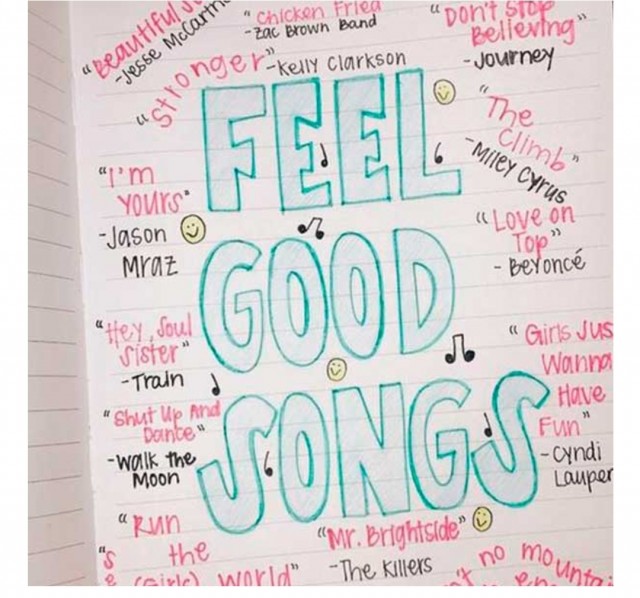 "Beautiful
-Jesse McCartn
"Chicken Fried
-Zac Brown Band
"Don't Stop
Believing"
-Journey
"Stronger"
-Kelly Clarkson
FEEL
GOOD
SONGS
"The
Climb"
-Miley Cyrus
"I'm
Yours"
-Jason
Mraz
"Love on
Top"
- Beyoncé
"Hey, Soul
Sister"
-Train
"Girls Jus
Wanna
Have
Fun"
-Cyndi
Lauper
"Shut Up And
Dance"
-Walk the
Moon
"Run
the
World"
(Girls)
"Mr. Brightside"
-The Killers
no mounta